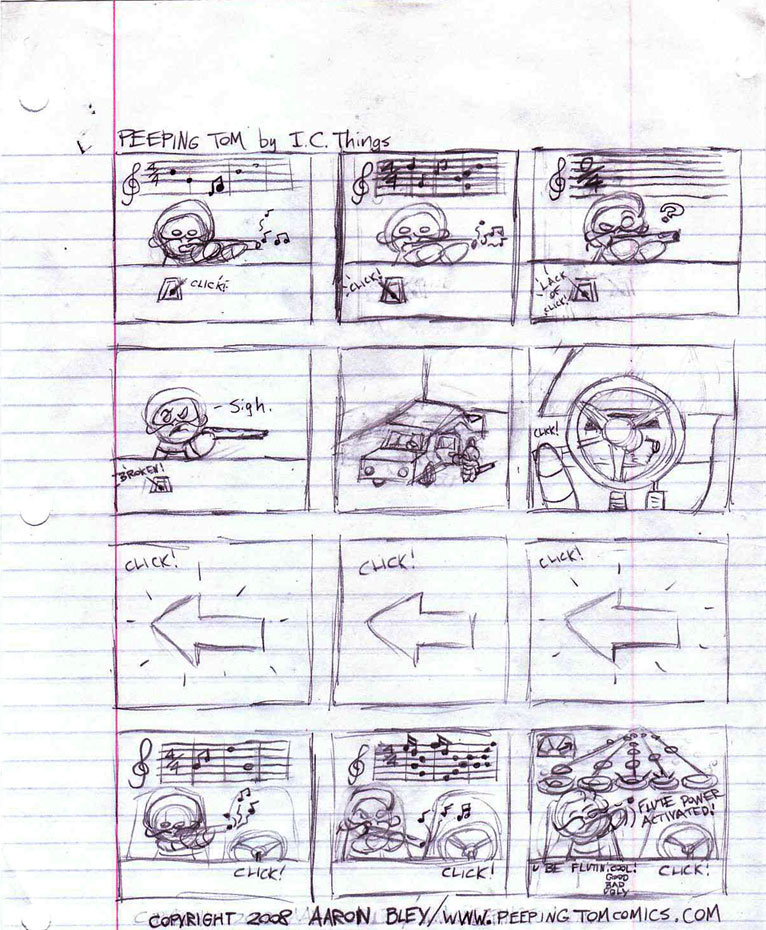 PEEPING TOM by I.C. Things
4/4
CLICK!
4/4
CLICK!
4
LACK
OF
CLICK!
?
- Sigh.
BROKEN!
CLICK!
CLICK!
CLICK!
CLICK!
4/4
CLICK!
4/4
CLICK!
FLUTE POWER
ACTIVATED!
U BE FLUTIN: COOL!
GOOD
BAD
UGLY
CLICK!
COPYRIGHT 2008 AARON BLEY/WWW.PEEPINGTOMCOMICS.COM